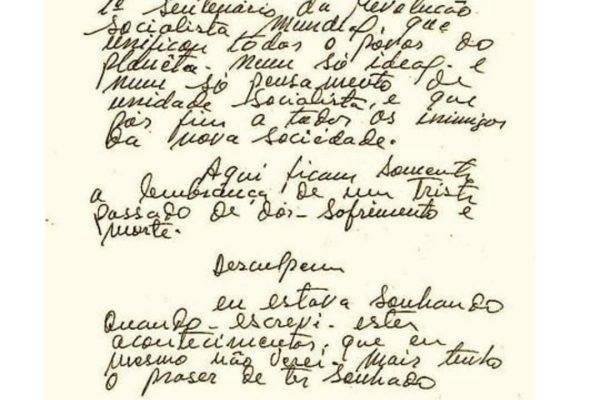 1º Sentenário da Revolução
Socialista Mundial, que
unificou todos o povos do
planêta. num só ideal. e
num só pensamento de
unidade socialista, e que
pôs fim a todos os inimigos
da nova sociedade.
Aqui ficam somente
a lembrança de um triste
passado de dôr. sofrimento e
morte.
Desculpem
eu estava sonhando
quando. escrevi. estes
acontecimentos. que eu
mesmo não verei. mais tenho
o praser de ter sonhado